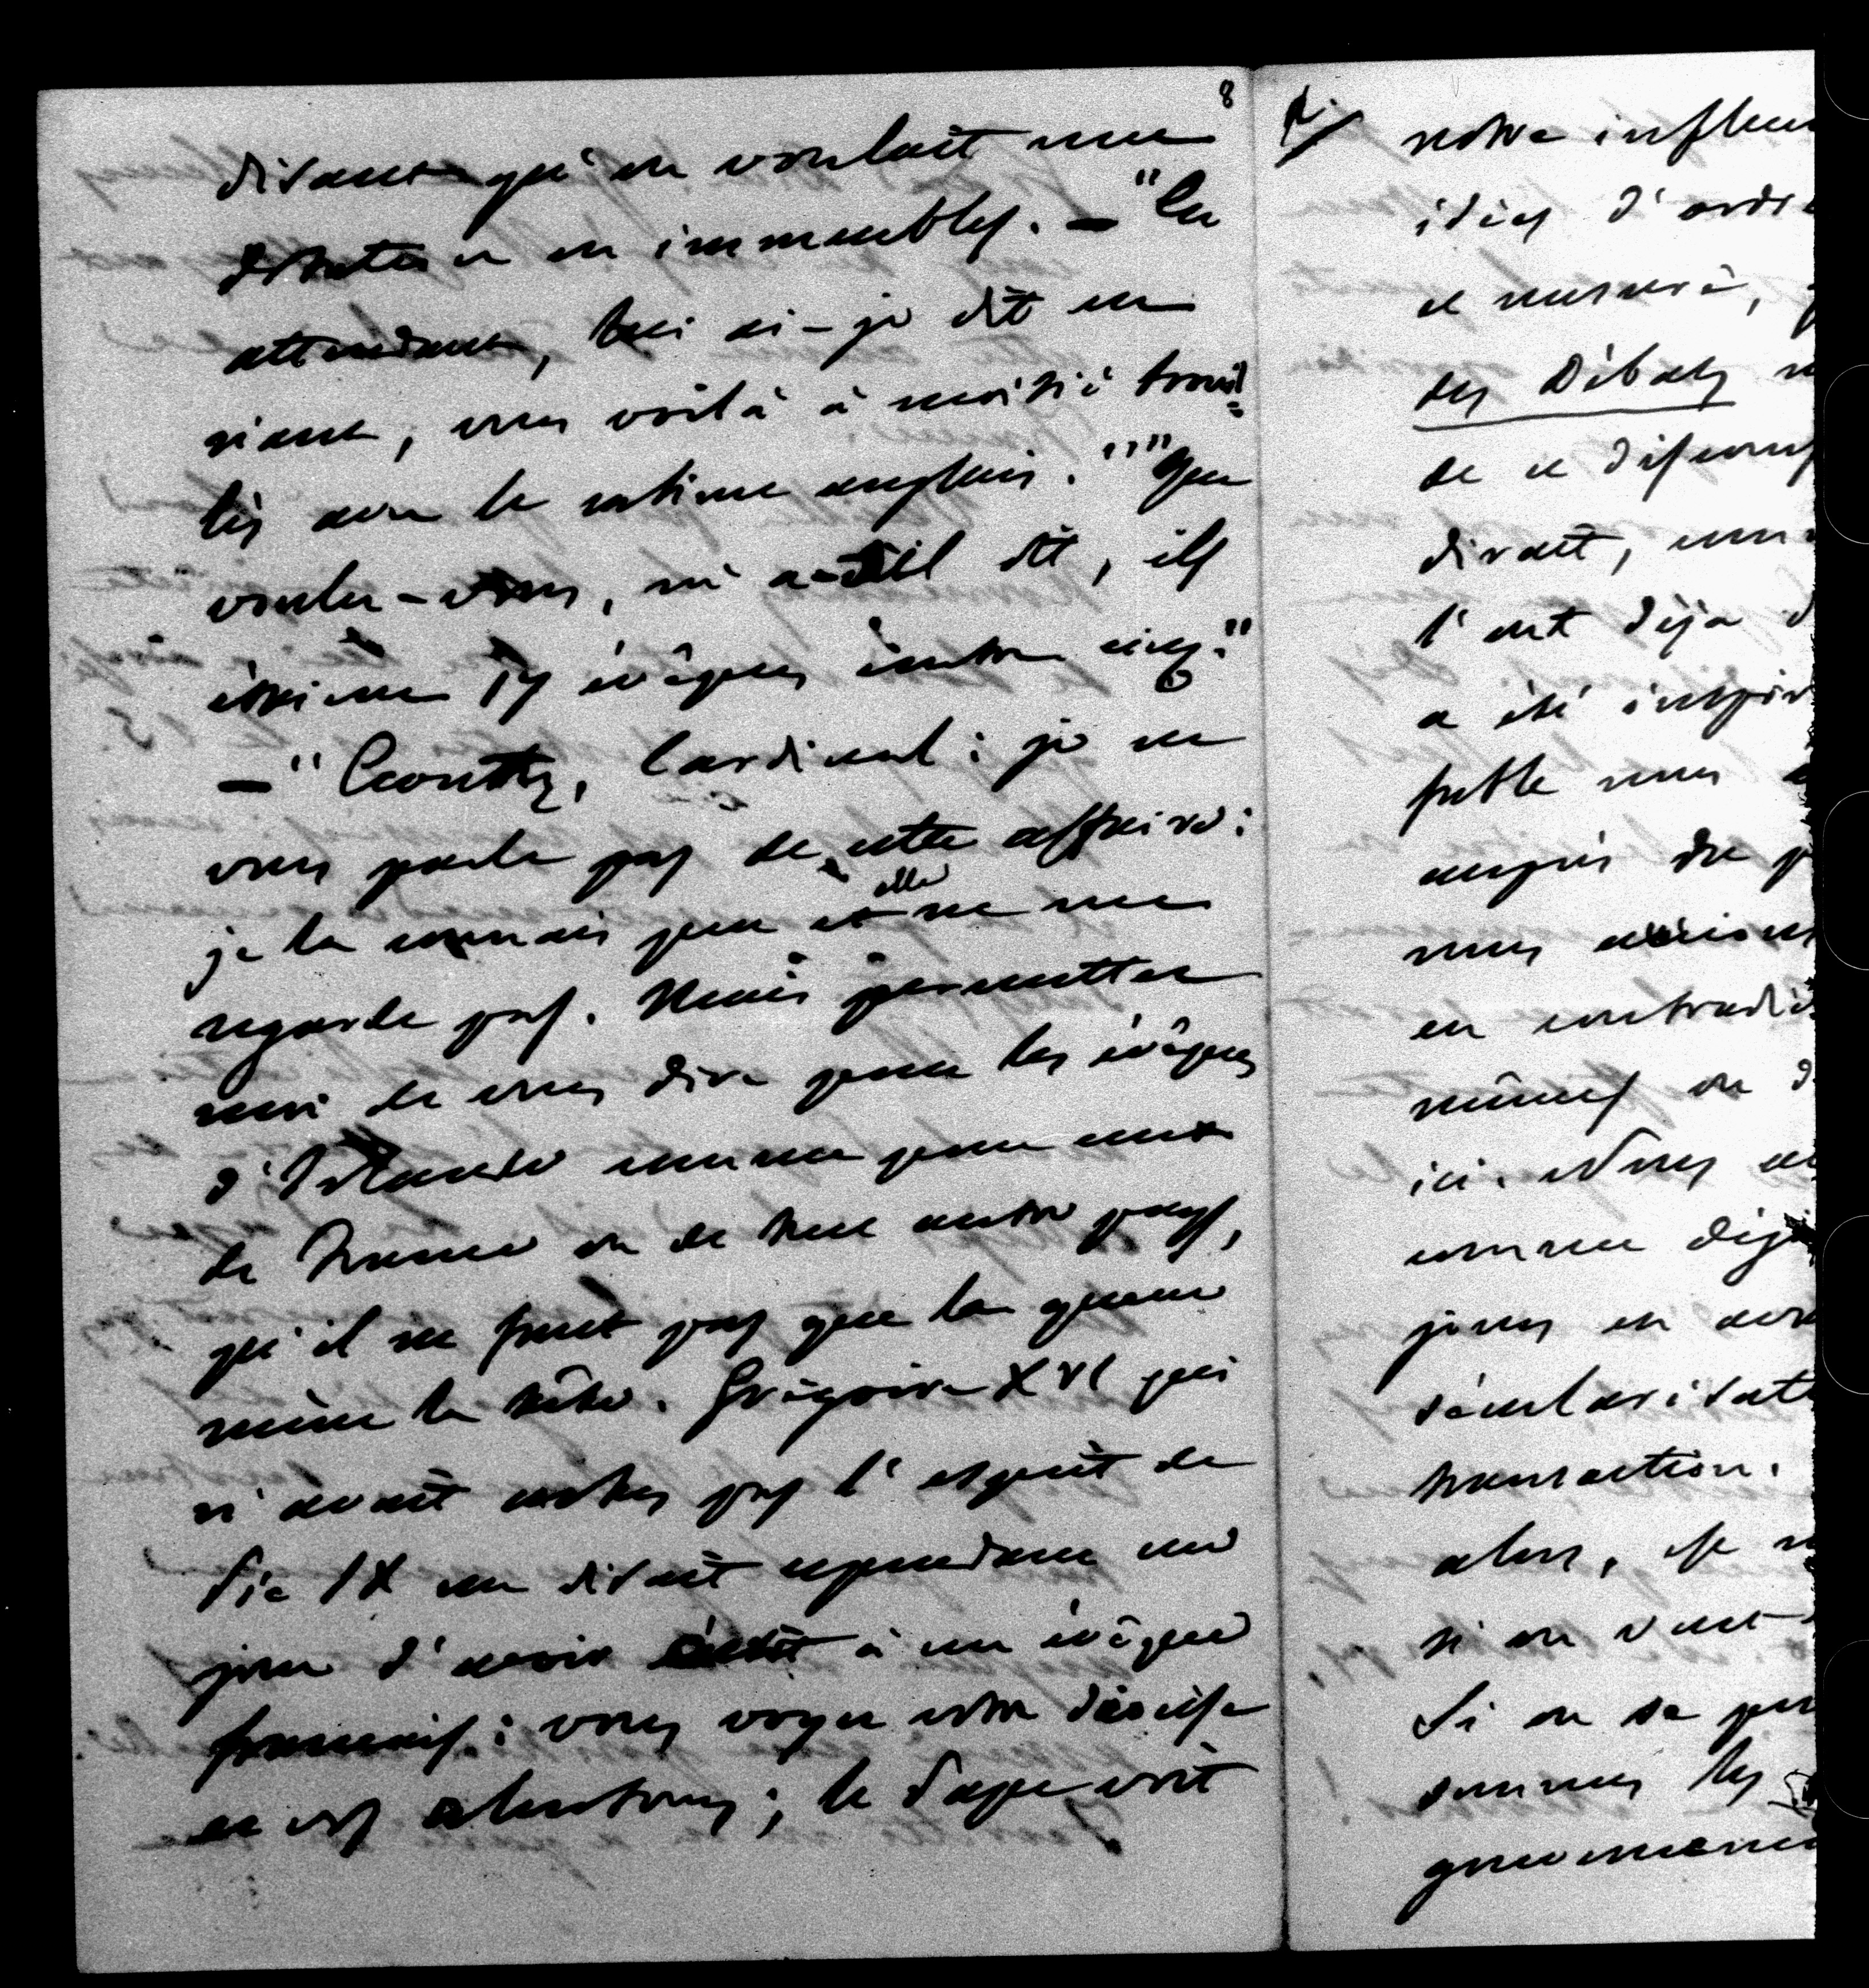 8
disant qu'on voulait une
dotation en immeubles. — "En
attendant, lui ai-je dit en
riant, vous voilà à moitié brouil=
lés avec le ministre anglais." "Que
voulez-vous, m'a-t-il dit, ils
étaient 17 évêques contre cinq."
— "Ecoutez, Cardinal : je ne
vous parle pas de cette affaire :
je la connais peu et elle ne me
regarde pas. Mais permettez
moi de vous dire pour les évêques
d'Irlande comme pour ceux
de France ou de tout autre pays,
qu'il ne faut pas que la queue
mène la tête. Grégoire XVI qui
n'avait certes pas l'esprit de
Pie IX me disait cependant un
jour d'avoir écrit à un évêque
français : vous voyez votre diocèse
et vos alentours ; le Pape voit
notre influen
idées d'ordre
et mesuré,
des Débats
de ce discours
disait,
l'ont déjà d
a été inspir
auprès du p
nous
en contradic
mêmes on d
ici. Nous
comme
jours en
sécularisat
transaction.
alors,
si on veut
Si on se
sommes les
gouverneme